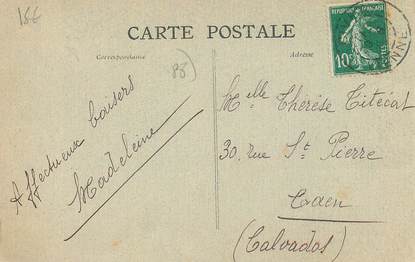 16€
CARTE POSTALE
Correspondance
Adresse
88
REPUBLIQUE FRANÇAISE
10c
POSTES
NNE
Affectueux baisers
Madeleine
Melle Thérèse Titécat
30, rue St Pierre
Caen
(Calvados)